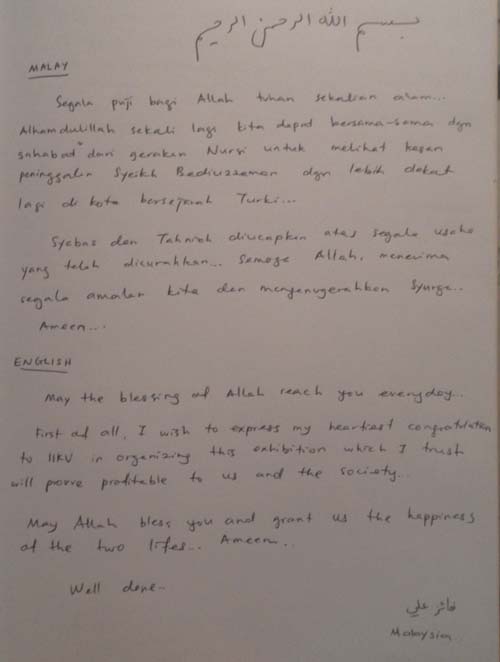 بسم الله الرحمن الرحيم
MALAY
Segala puji bagi Allah tuhan sekalian alam...
Alhamdulillah sekali lagi kita dapat bersama-sama dgn
sahabat" dari gerakan Nursi untuk melihat kesan
peninggalan Syeikh Bediuzzaman dgn lebih dekat
lagi di kota bersejarah Turki...
Syabas dan Tahniah diucapkan atas segala usaha
yang telah dicurahkan... Semoga Allah, menerima
segala amalan kita dan menganugerahkan Syurga..
Ameen...
ENGLISH
May the blessing of Allah reach you everyday...
First of all, I wish to express my heartiest congratulation
to IIKV in organizing this exhibition which I trust
will prove profitable to us and the society...
May Allah bless you and grant us the happiness
of the two lifes... Ameen...
Well done..
فائز علي
Malaysia